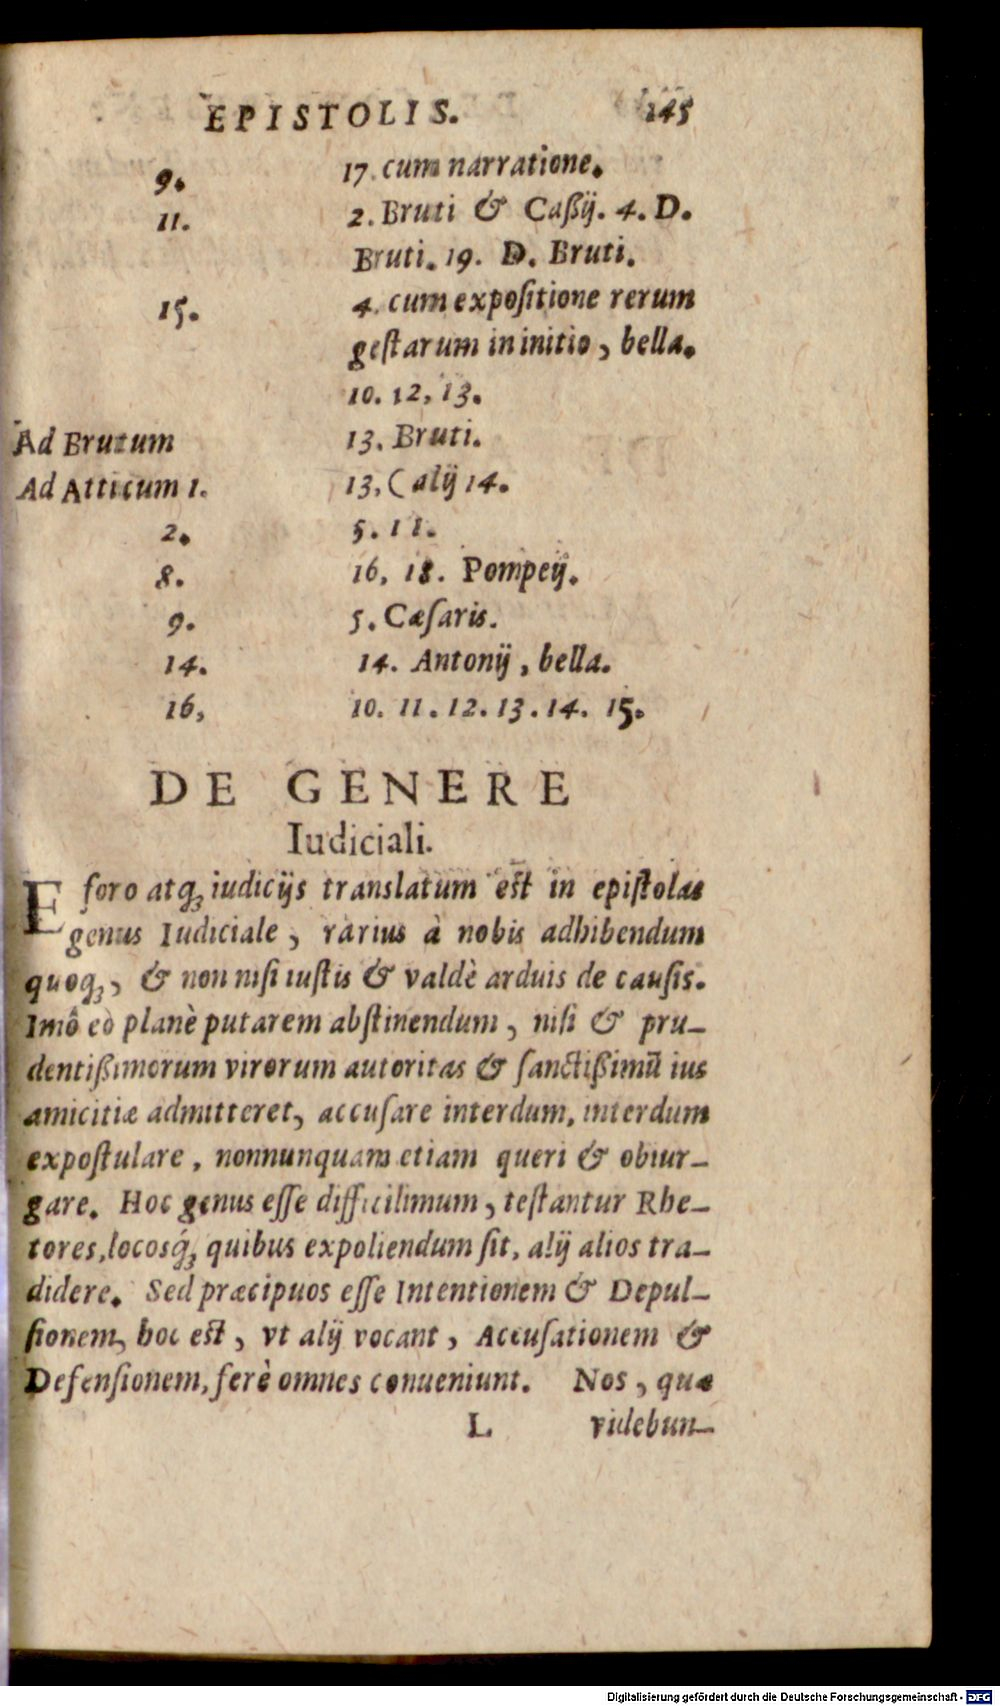 EPISTOLIS. 145
9. 17. cum narratione.
11. 2. Bruti & Caßij. 4. D.
Bruti. 19. D. Bruti.
15. 4. cum expoſitione rerum
geſtarum in initio, bella.
10. 12, 13.
Ad Brutum 13. Bruti.
Ad Atticum 1. 13, Calij 14.
2. 5. 11.
8. 16, 18. Pompeij.
9. 5. Cæſaris.
14. 14. Antonij, bella.
16, 10. 11. 12. 13. 14. 15.
DE GENERE
Iudiciali.
E foro atqꝫ iudicijs translatum est in epiſtolas
genus Iudiciale, rarius à nobis adhibendum
quoqꝫ, & non niſi iuſtis & valdè arduis de cauſis.
Imô eò planè putarem abſtinendum, niſi & pru-
dentißimorum virorum autoritas & ſanctißimũ ius
amicitiæ admitteret, accuſare interdum, interdum
expoſtulare, nonnunquam etiam queri & obiur-
gare. Hoc genus eſſe difficilimum, teſtantur Rhe-
tores, locosq́ꝫ quibus expoliendum ſit, alij alios tra-
didere. Sed præcipuos eſſe Intentionem & Depul-
ſionem, hoc est, vt alij vocant, Accuſationem &
Defenſionem, ferè omnes conueniunt. Nos, quæ
L videbun-
Digitalisierung gefördert durch die Deutsche Forschungsgemeinschaft - DFG